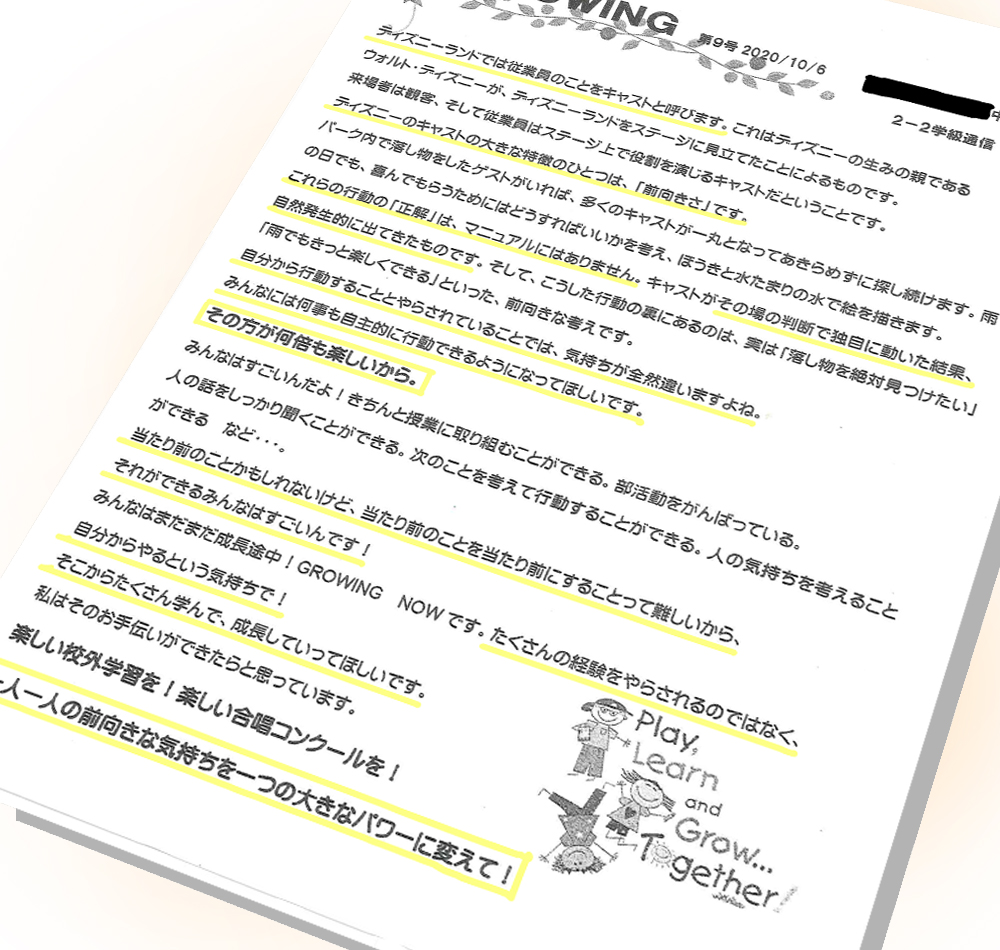 WING
第9号 2020/10/6
中
2－2学級通信
ディズニーランドでは従業員のことをキャストと呼びます。これはディズニーの生みの親である
ウォルト・ディズニーが、ディズニーランドをステージに見立てたことによるものです。
来場者は観客、そして従業員はステージ上で役割を演じるキャストだということです。
ディズニーのキャストの大きな特徴のひとつは、「前向きさ」です。
パーク内で落し物をしたゲストがいれば、多くのキャストが一丸となってあきらめずに探し続けます。雨
の日でも、喜んでもらうためにはどうすればいいかを考え、ほうきと水たまりの水で絵を描きます。
これらの行動の「正解」は、マニュアルにはありません。キャストがその場の判断で独目に動いた結果、
自然発生的に出てきたものです。そして、こうした行動の裏にあるのは、実は「落し物を絶対見つけたい」
「雨でもきっと楽しくできる」といった、前向きな考えです。
自分から行動することとやらされていることでは、気持ちが全然違いますよね。
みんなには何事も自主的に行動できるようになってほしいです。
その方が何倍も楽しいから。
みんなはすごいんだよ！きちんと授業に取り組むことができる。部活動をがんばっている。
人の話をしっかり聞くことができる。次のことを考えて行動することができる。人の気持ちを考えること
ができる　など・・・。
当たり前のことかもしれないけど、当たり前のことを当たり前にすることって難しいから、
それができるみんなはすごいんです！
みんなはまだまだ成長途中！GROWING　NOWです。たくさんの経験をやらされるのではなく、
自分からやるという気持ちで！
そこからたくさん学んで、成長していってほしいです。
私はそのお手伝いができたらと思っています。
楽しい校外学習を！楽しい合唱コンクールを！
一人一人の前向きな気持ちを一つの大きなパワーに変えて！
Play,
Learn
and
Grow...
Together!